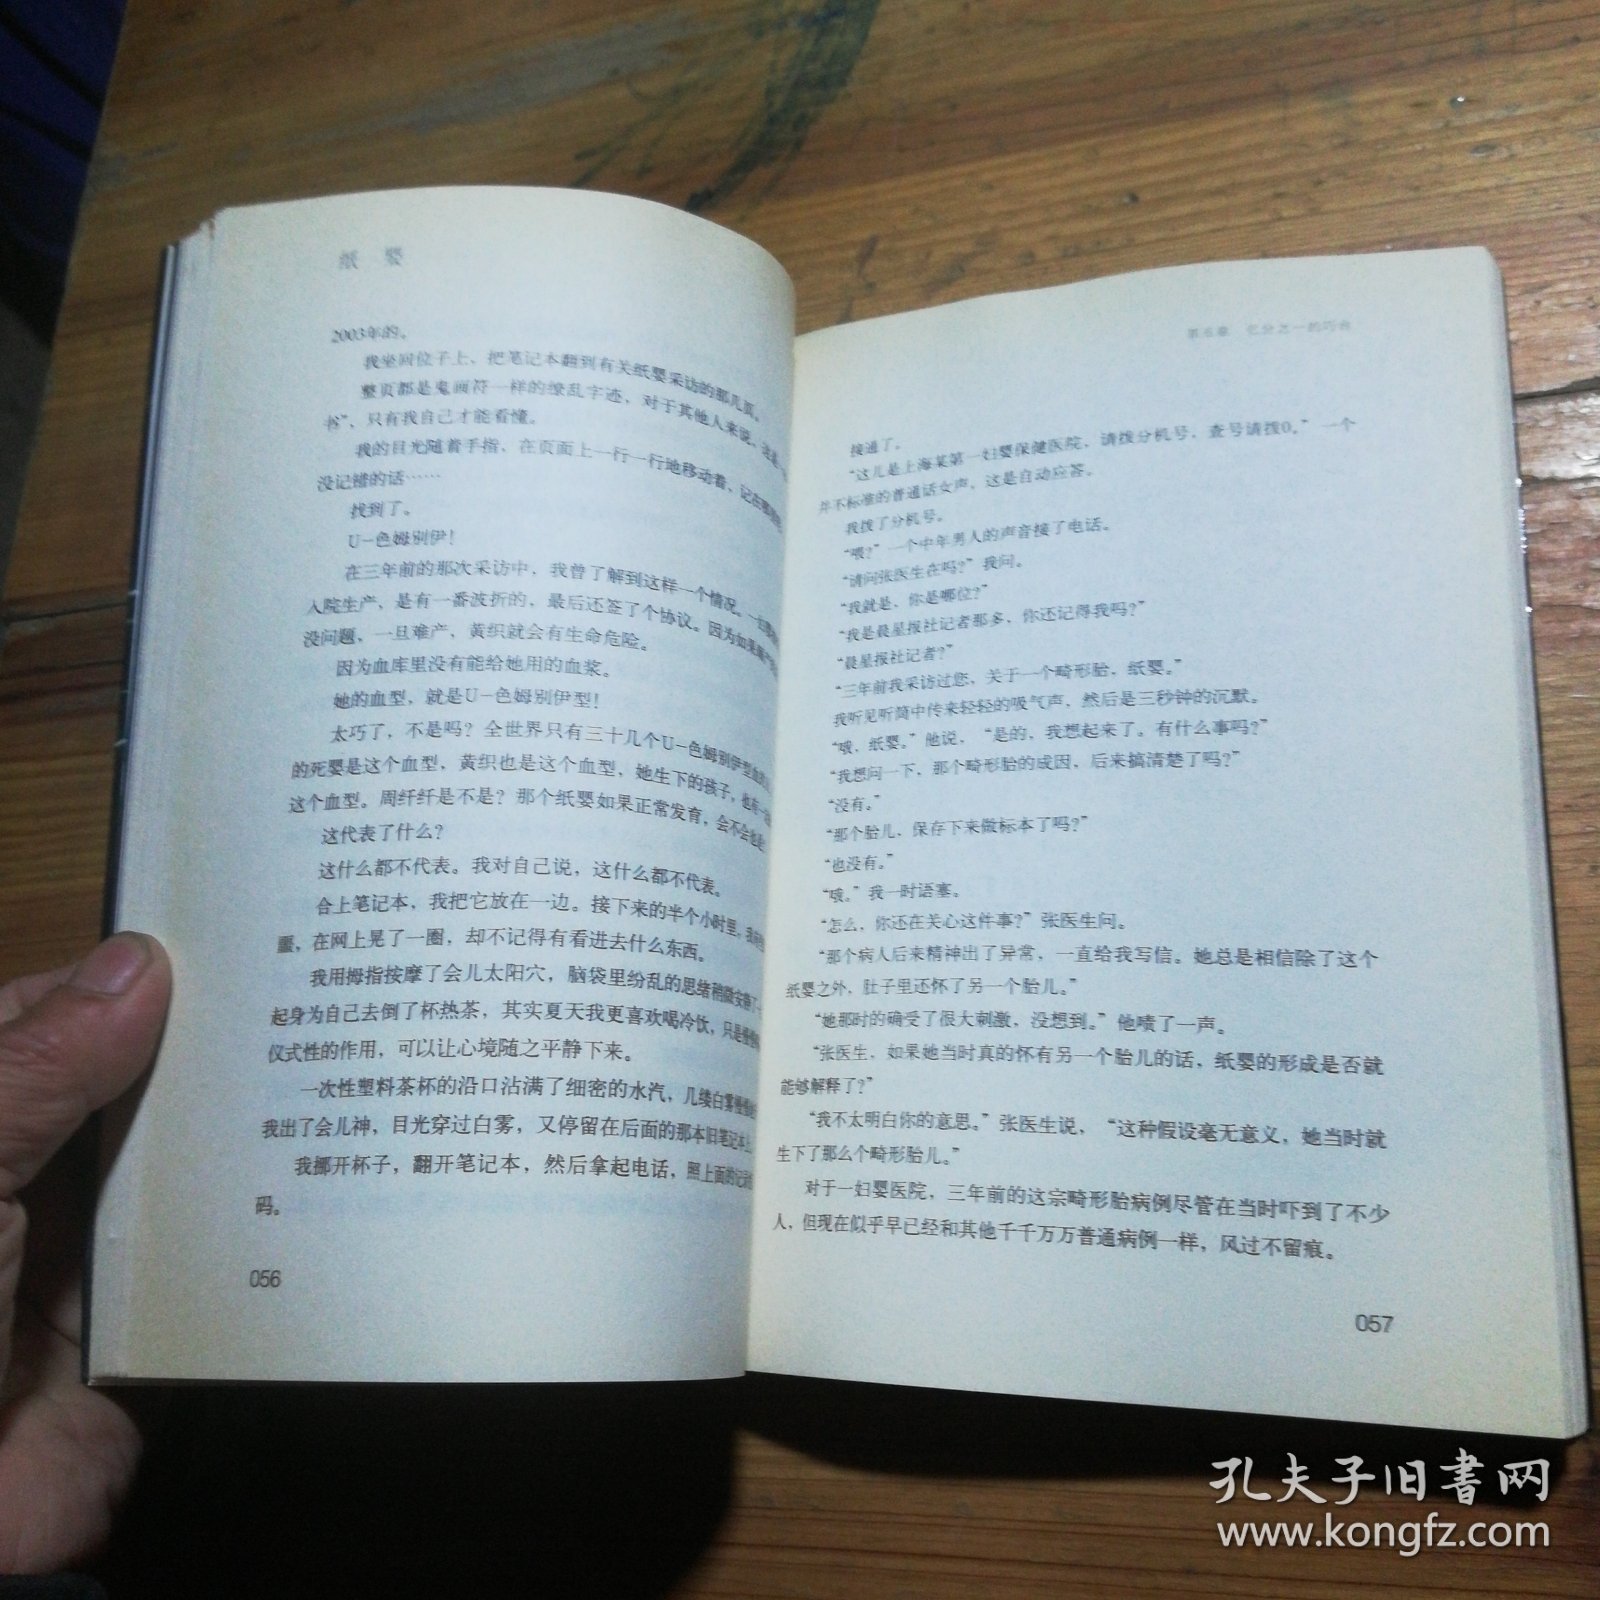 纸 婴
2003年的。
我坐回位子上，把笔记本翻到有关纸婴采访的那几页。
整页都是鬼画符一样的缭乱字迹，对于其他人来说，
书”，只有我自己才能看懂。
我的目光随着手指，在页面上一行一行地移动着，记在
没记错的话……
找到了。
U-色姆别伊！
在三年前的那次采访中，我曾了解到这样一个情况。
入院生产，是有一番波折的，最后还签了个协议。因为如果
没问题，一旦难产，黄织就会有生命危险。
因为血库里没有能给她用的血浆。
她的血型，就是U-色姆别伊型！
太巧了，不是吗？全世界只有三十几个U-色姆别伊型
的死婴是这个血型，黄织也是这个血型，她生下的孩子，也有
这个血型。周纤纤是不是？那个纸婴如果正常发育，会不会也是
这代表了什么？
这什么都不代表。我对自己说，这什么都不代表。
合上笔记本，我把它放在一边。接下来的半个小时里，我
，在网上晃了一圈，却不记得有看进去什么东西。
我用拇指按摩了会儿太阳穴，脑袋里纷乱的思绪稍微安静了
起身为自己去倒了杯热茶，其实夏天我更喜欢喝冷饮，只是
仪式性的作用，可以让心境随之平静下来。
一次性塑料茶杯的沿口沾满了细密的水汽，几缕白雾慢慢
我出了会儿神，目光穿过白雾，又停留在后面的那本旧笔记本上
我挪开杯子，翻开笔记本，然后拿起电话，照上面的记
码。
056
亿分之一的巧合
接通了。
“这儿是上海某第一妇婴保健医院，请拨分机号，查号请拨0。”一个
并不标准的普通话女声，这是自动应答。
我拨了分机号。
“喂？”一个中年男人的声音接了电话。
“请问张医生在吗？”我问。
“我就是，你是哪位？”
“我是晨星报社记者那多，你还记得我吗？”
“晨星报社记者？”
“三年前我采访过您，关于一个畸形胎，纸婴。”
我听见听筒中传来轻轻的吸气声，然后是三秒钟的沉默。
“哦，纸婴。”他说，“是的，我想起来了。有什么事吗？”
“我想问一下，那个畸形胎的成因，后来搞清楚了吗？”
“没有。”
“那个胎儿，保存下来做标本了吗？”
“也没有。”
“哦。”我一时语塞。
“怎么，你还在关心这件事？”张医生问。
“那个病人后来精神出了异常，一直给我写信。她总是相信除了这个
纸婴之外，肚子里还怀了另一个胎儿。”
“她那时的确受了很大刺激，没想到。”他啧了一声。
“张医生，如果她当时真的怀有另一个胎儿的话，纸婴的形成是否就
能够解释了？”
“我不太明白你的意思。”张医生说，“这种假设毫无意义，她当时就
生下了那么个畸形胎儿。”
对于一妇婴医院，三年前的这宗畸形胎病例尽管在当时吓到了不少
人，但现在似乎早已经和其他千千万万普通病例一样，风过不留痕。
057
孔夫子旧书网
www.kongfz.com